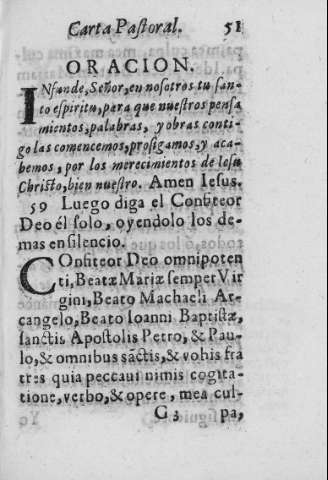 Carta Pastoral. 51
ORACION.
INfunde, Señor, en nosotros tu san-
to espiritu, para que nuestros pensa
mientos, palabras, y obras conti-
go las comencemos, prosigamos, y aca-
bemos, por los merecimientos de Iesu
Christo, bien nuestro. Amen Iesus.
59 Luego diga el Confiteor
Deo él solo, oyendolo los de-
mas en silencio.
COnfiteor Deo omnipoten
ti, Beatæ Mariæ semper Vir
gini, Beato Machaeli Ar-
cangelo, Beato Ioanni Baptistæ,
sanctis Apostolis Petro, & Pau-
lo, & omnibus sãctis, & vobis fra
tres quia peccavi nimis cogita-
tione, verbo, & opere, mea cul-
G 3 pa,